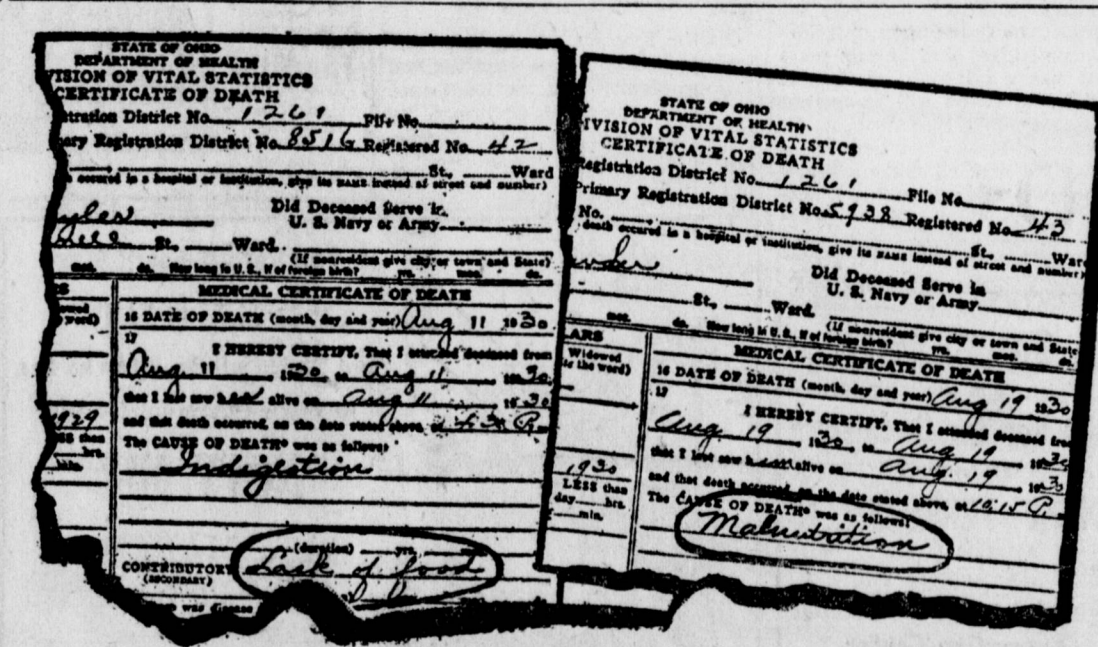 STATE OF OHIO
DEPARTMENT OF HEALTH
VISION OF VITAL STATISTICS
CERTIFICATE OF DEATH
stration District No. 1261 File No.
ary Registration District No. 8516 Registered No. 42
St., Ward
occured in a hospital or institution, give its NAME instead of street and number)
Did Deceased Serve in
U. S. Navy or Army
St., Ward.
(If nonresident give city or town and State)
mos. ds. How long in U. S., if of foreign birth? yrs. mos. ds.
MEDICAL CERTIFICATE OF DEATH
word)
16 DATE OF DEATH (month, day and year) Aug 11 1930
17
I HEREBY CERTIFY, That I attended deceased from
Aug 11 1930 to Aug 11 1930
that I last saw h alive on Aug 11 1930
1929
and that death occurred, on the date stated above, at P.
LESS than
hrs.
min.
The CAUSE OF DEATH* was as follows:
Indigestion
(duration) yrs.
CONTRIBUTORY Lack of food
(SECONDARY)
was disease
STATE OF OHIO
DEPARTMENT OF HEALTH
IVISION OF VITAL STATISTICS
CERTIFICATE OF DEATH
Registration District No. 1261 File No.
Primary Registration District No. 5938 Registered No. 43
No. St., Ward
death occured in a hospital or institution, give its NAME instead of street and number)
Did Deceased Serve in
U. S. Navy or Army
St., Ward.
(If nonresident give city or town and State
mos. ds. How long in U. S., if of foreign birth? yrs. mos.
ARS
MEDICAL CERTIFICATE OF DEATH
Widowed
the word)
16 DATE OF DEATH (month, day and year) Aug 19 1930
17
I HEREBY CERTIFY, That I attended deceased from
Aug. 19, 1930, to Aug 19 1930
that I last saw h alive on Aug. 19 1930
1930
and that death occurred, on the date stated above, at 10:15 P.
LESS than
day hrs.
min.
The CAUSE OF DEATH* was as follows:
Malnutrition